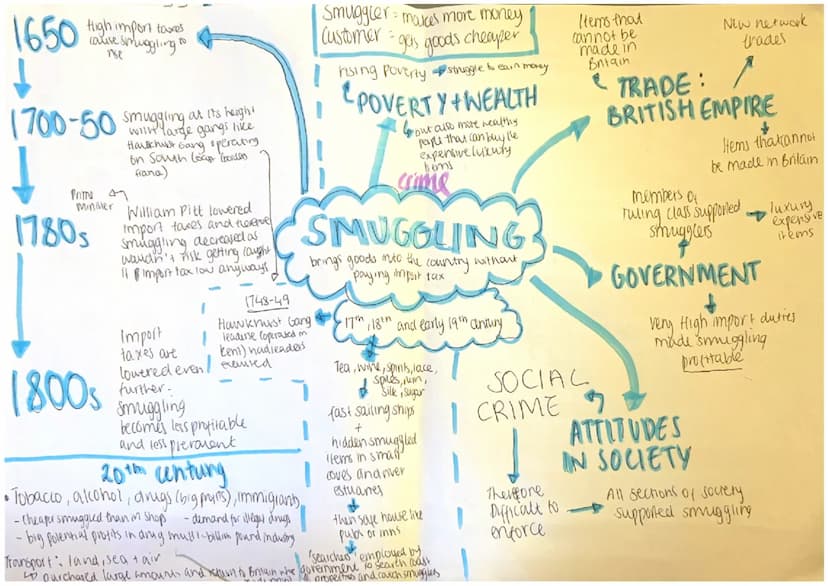 1650
High import taxes
cause smuggling to
rise
1700-50
smuggling at its height
with large gangs like
Hawkhurst Gang operating
on South coast
Prime
minister
1780s
William Pitt lowered
import taxes and therefore
smuggling decreased as
wouldn't risk getting caught
if import tax low anyways
1800s
Import
taxes are
lowered even
further:
smuggling
becomes less profitable
and less prevalent
20th century
• Tobacco, alcohol, drugs (big profits), immigrants
- cheaper smuggled than in shop - demand for illegal drugs
- big potential profits in drug multi-billion pound industry
Transport: land, sea + air
purchased large amounts and return to Britain
Smuggler = makes more money
Customer = gets goods cheaper
rising poverty → struggle to earn money
POVERTY + WEALTH
but also more wealthy
people that can buy the
expensive luxury
items
crime
SMUGGLING
brings goods into the country without
paying import tax
17th, 18th and early 19th century
1748-49
Hawkhurst Gang
(operated in
Kent) had leaders
executed
Tea, wine, spirits, lace,
spices, rum,
silk, sugar
fast sailing ships
+
hidden smuggled
items in small
coves and river
estuaries
then safe house like
pubs or inns
'searchers' employed by
government to search coast
properties and catch smugglers
Items that
cannot be
made in
Britain
New network
trades
TRADE:
BRITISH EMPIRE
Items that cannot
be made in Britain
members of
ruling class supported
smugglers
→ luxury
expensive
items
GOVERNMENT
Very High import duties
made smuggling
profitable
SOCIAL
CRIME
ATTITUDES
IN SOCIETY
Therefore
Difficult to
enforce
→ All sections of society
supported smuggling